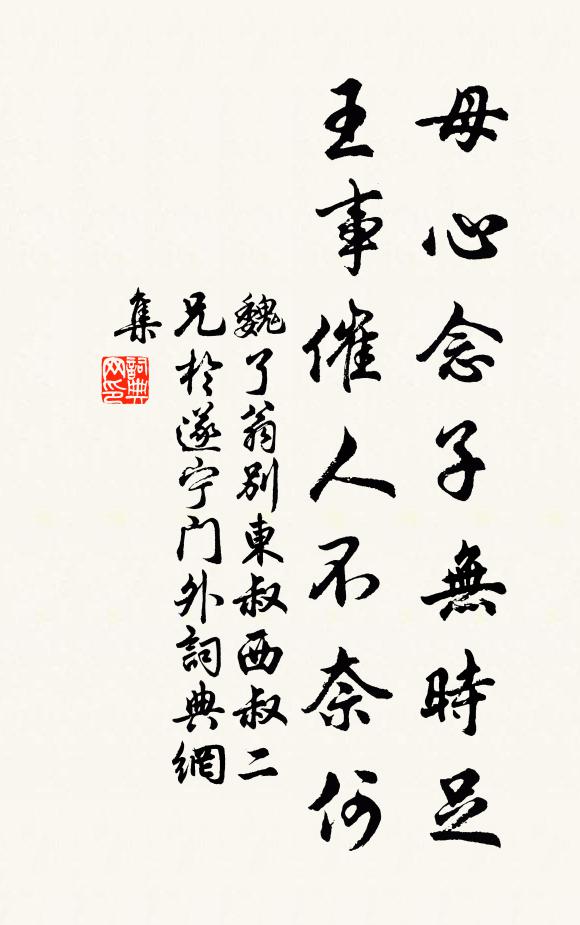 母心念子無時足
王事催人不奈何
魏了翁別東叔西叔二
兄於遂宁门外詞典網
集
詞典
网印